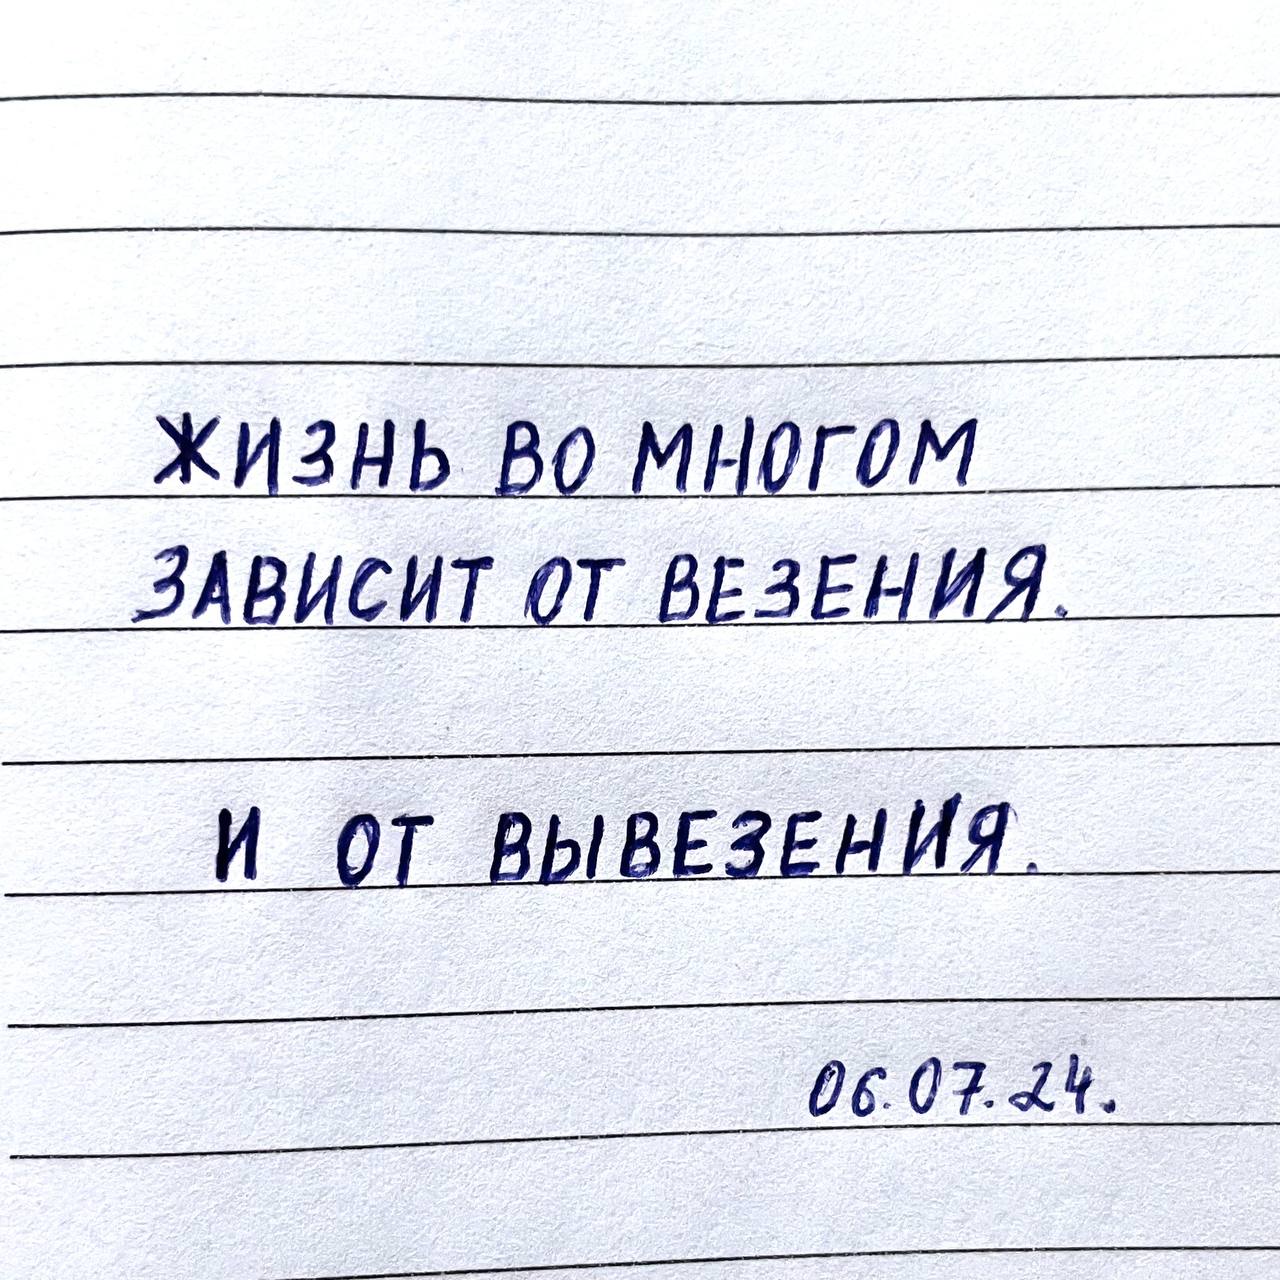 ЖИЗНЬ ВО МНОГОМ
ЗАВИСИТ ОТ ВЕЗЕНИЯ.
И ОТ ВЫВЕЗЕНИЯ.
06.07.24.